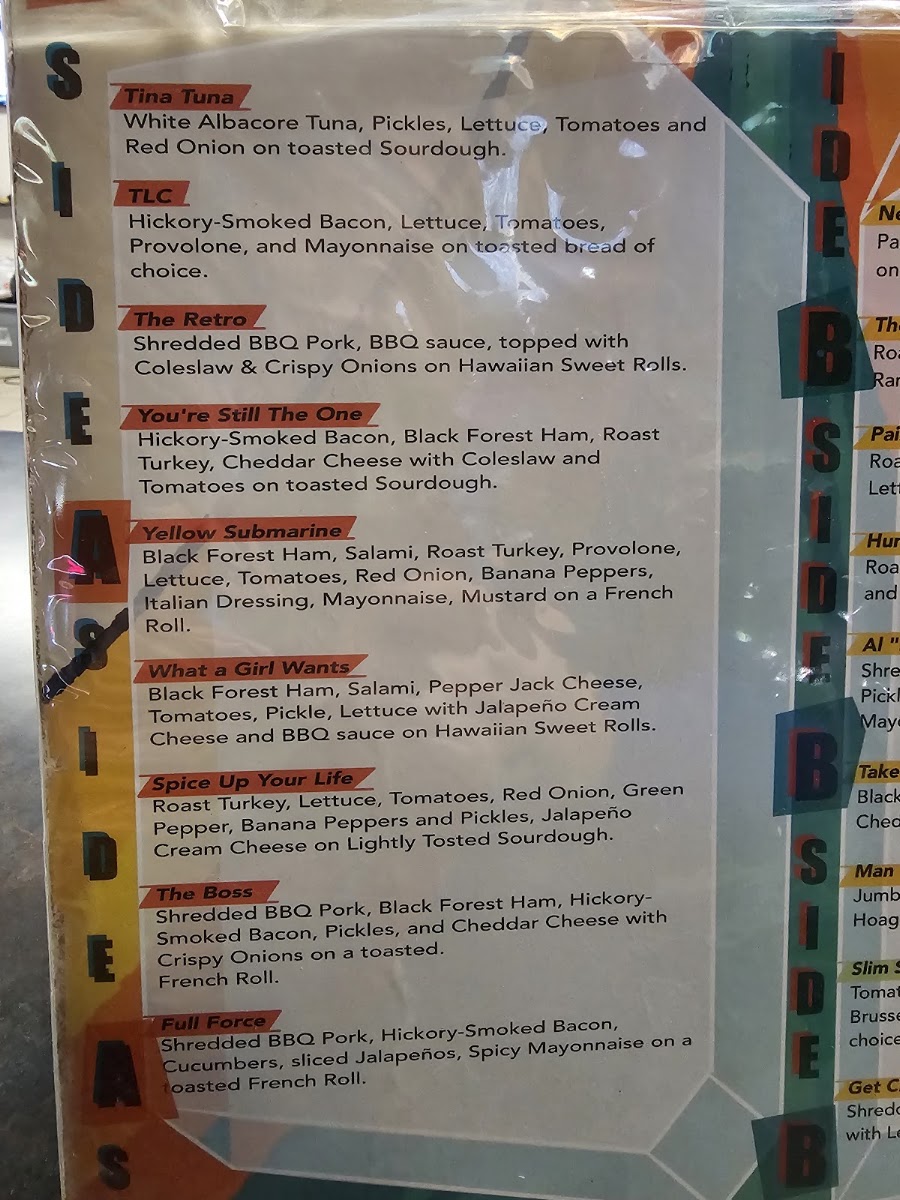 SIDE A SIDE A S
Tina Tuna
White Albacore Tuna, Pickles, Lettuce, Tomatoes and
Red Onion on toasted Sourdough.
TLC
Hickory-Smoked Bacon, Lettuce, Tomatoes,
Provolone, and Mayonnaise on toasted bread of
choice.
The Retro
Shredded BBQ Pork, BBQ sauce, topped with
Coleslaw & Crispy Onions on Hawaiian Sweet Rolls.
You're Still The One
Hickory-Smoked Bacon, Black Forest Ham, Roast
Turkey, Cheddar Cheese with Coleslaw and
Tomatoes on toasted Sourdough.
Yellow Submarine
Black Forest Ham, Salami, Roast Turkey, Provolone,
Lettuce, Tomatoes, Red Onion, Banana Peppers,
Italian Dressing, Mayonnaise, Mustard on a French
Roll.
What a Girl Wants
Black Forest Ham, Salami, Pepper Jack Cheese,
Tomatoes, Pickle, Lettuce with Jalapeño Cream
Cheese and BBQ sauce on Hawaiian Sweet Rolls.
Spice Up Your Life
Roast Turkey, Lettuce, Tomatoes, Red Onion, Green
Pepper, Banana Peppers and Pickles, Jalapeño
Cream Cheese on Lightly Tosted Sourdough.
The Boss
Shredded BBQ Pork, Black Forest Ham, Hickory-
Smoked Bacon, Pickles, and Cheddar Cheese with
Crispy Onions on a toasted.
French Roll.
Full Force
Shredded BBQ Pork, Hickory-Smoked Bacon,
Cucumbers, sliced Jalapeños, Spicy Mayonnaise on a
toasted French Roll.
IDE B SIDE B SIDE B
Ne
Pa
on
Th
Roa
Ran
Pai
Roa
Lett
Hur
Roa
and
Al "
Shre
Pickl
Mayo
Take
Black
Ched
Man
Jumb
Hoag
Slim S
Tomat
Brusse
choice
Get C
Shredd
with Le